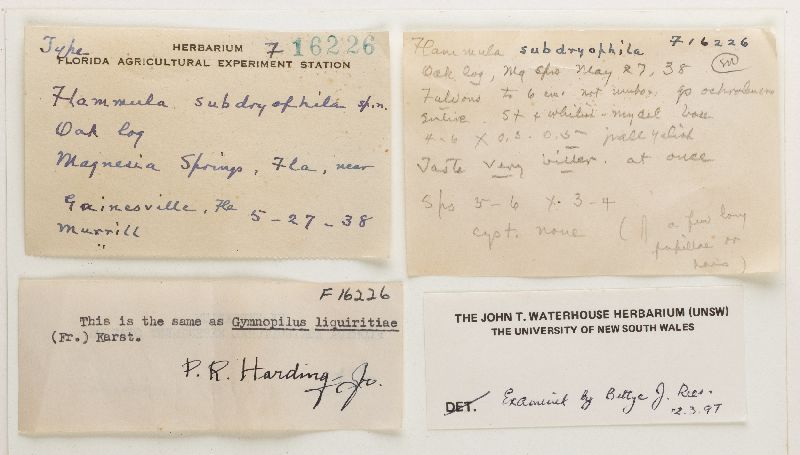 Type HERBARIUM F 16226
FLORIDA AGRICULTURAL EXPERIMENT STATION
Flammula subdryophila sp. n.
Oak log
Magnesia Springs, Fla, near
Gainesville, Fla 5-27-38
Murrill
"
Flammula subdryophila F16226
Oak log, Mg Sprs May 27, 38
Fulvous to 6 cm. not umbo. gs ochroleucous
entire. St + whitish mycel. base
4-6 X 0.3-0.5 pall yelish
Taste very bitter. at once
Sps 5-6 X 3-4
cyst. none ( a few long
papillae or
hairs )
F16226
This is the same as Gymnopilus liquiritiae
(Fr.) Karst.
P. R. Harding Jr.
THE JOHN T. WATERHOUSE HERBARIUM (UNSW)
THE UNIVERSITY OF NEW SOUTH WALES
DET. Examined by Bettye J. Rees.
12.3.97